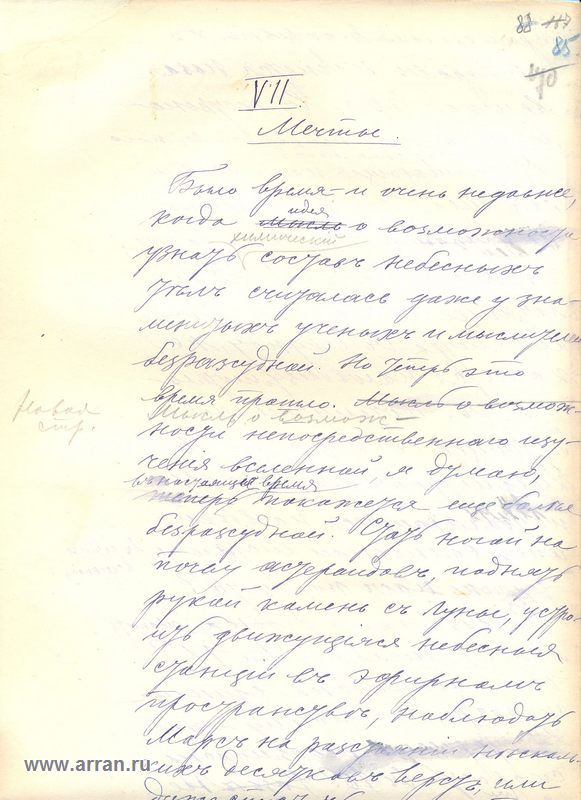 83 117
85
140
VII.
Мечты.
Было время – и очень недавнее,
когда мысль идея о возможности
узнать химическій составъ небесныхъ
тѣлъ считалась даже у зна-
менитыхъ ученыхъ и мыслителей
безразсудной. Но теперь это
время прошло. Мысль о возмож-
Новая стр.
Мысль о возмож-
ности непосредственнаго изу-
ченія вселенной, я думаю,
въ настоящее время
теперь покажется еще болѣе
безразсудной. Стать ногой на
почву астероидовъ, поднять
рукой камень съ луны, устро-
ить движущіяся небесныя
станціи въ эфирномъ
пространствѣ, наблюдать
Марсъ на разстояніи нѣсколь-
кихъ десятковъ верстъ, или
www.arran.ru